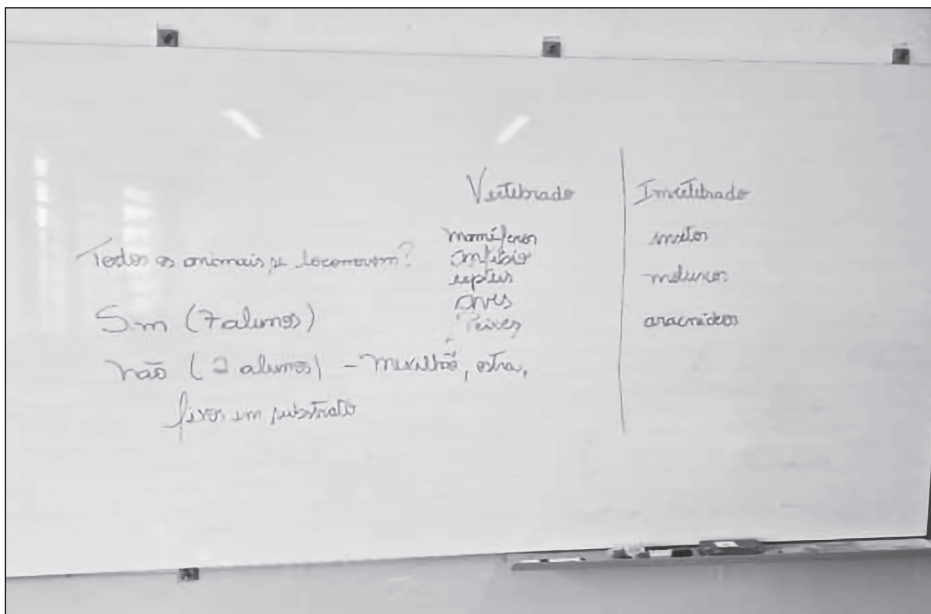 Todos os animais se locomovem?
Sim (7 alunos)
não (2 alunos) - mexilhão, ostra,
fixos em substrato
Vertebrado
mamíferos
anfíbio
répteis
aves
Peixes
Invertebrado
insetos
moluscos
aracnídeos